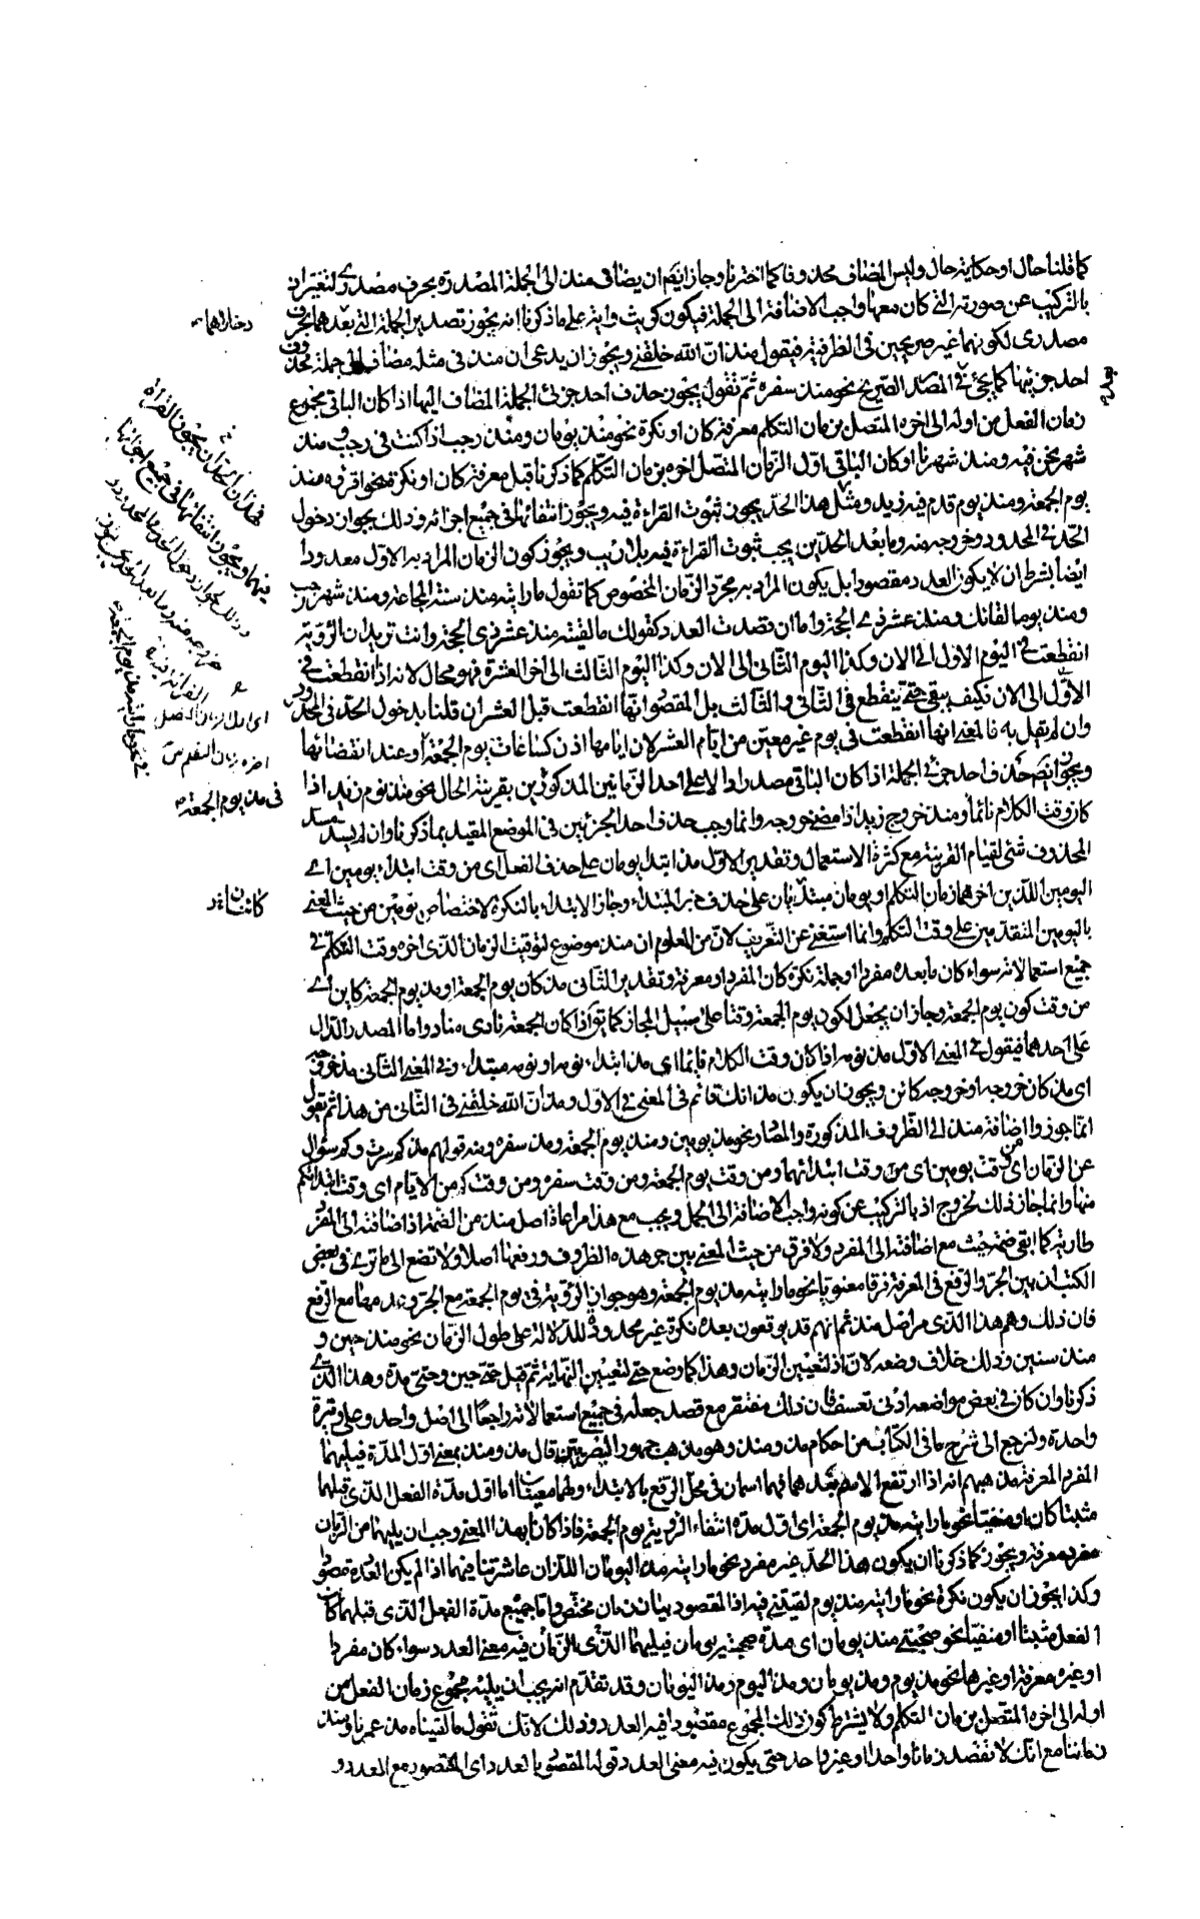 كما قلنا حال او حكاية حال وليس المضاف محذوفا كما اخترنا وجاز ايضم ان يضاف منذ الى الجملة المصدرة بحرف مصدري لتغيراذ
بالتركيب عن صورته التي كان معها واجب الاضافة الى الجملة فيكون كريث واية على ما ذكرنا انه يجوز تصدير الجملة التي بعدهما بحرف
مصدري لكونهما غير صريحين في الظرفية فيقول منذ انّ الله خلقني ويجوز ان يدعى ان منذ في مثله مضاف الى جملة محذوف
احد جزئيها كما يجئ في المصدر الصريح نحو منذ سفره ثم نقول يجوز حذف احد جزئى الجملة المضاف اليها اذا كان الباقي مجموع
زمان الفعل من اوله الى اخره المتصل بزمان التكلم معرفة كان او نكرة نحو منذ يومان ومنذ رجب اذا كنت في رجب ومنذ
شهر نحن فيه ومنذ شهرنا او كان الباقي اول الزمان المتصل اخره بزمان التكلم كما ذكرنا قبل معرفة كان او نكرة نحو اقرؤه منذ
يوم الجمعة ومنذ يوم قدم فيه زيد ومثل هذا الحد يجوز ثبوت القراءة فيه ويجوز انتفائها في جميع اجزائه وذلك بجواز دخول
الحد في المحدود وخروجه منه وما بعد الحدين يجب ثبوت القراءة فيه بلا ريب ويجوز كون الزمان المراد به الاول معدودا
ايضا بشرط ان لا يكون العدد مقصودا بل يكون المراد به مجرد الزمان المخصوص كما تقول ما رايته منذ سنة المجاعة ومنذ شهر رجب
ومنذ يوما لقائك ومنذ عشر ذي الحجة واما ان قصدت العدد كقولك ما لقيته منذ عشر ذي الحجة وانت تريد ان الرؤية
انقطعت في اليوم الاول الى الان وكذا اليوم الثاني الى الان وكذا اليوم الثالث الى اخر العشرة فهو محال لانه اذا انقطعت في
الاول الى الان فكيف يبقى حتى تنقطع في الثاني والثالث بل المقصود انها انقطعت قبل العشر ان قلنا بدخول الحد في المحدود
وان لم يقل به فالمعنى انها انقطعت في يوم غير معين من ايام العشر لان ايامها اذن كساعات يوم الجمعة او عند انقضائها
ويجوز ايضم حذف احد جزئي الجملة اذا كان الباقي مصدرا دالا على احد الزمانين المذكورين بقرينة الحال نحو منذ نوم زيد اذا
كان وقت الكلام نائما ومنذ خروج زيد اذا مضى خروجه وانما وجب حذف احد الجزئين في الموضع المقيد بما ذكرنا وان لم يسد مسد
المحذوف شئ لقيام القرينة مع كثرة الاستعمال وتقدير الاول مذ ابتدا يومان على حذف الفعل اي من وقت ابتداء يومين اي
اليومين اللذين اخرهما زمان التكلم او يومان مبتدئان على حذف خبر المبتدء وجاز الابتداء بالنكرة لاختصاص يومين من حيث المعنى
باليومين المتقدمين على وقت التكلم وانما استغنى عن التعريف لان من المعلوم ان منذ موضوع لتوقيت الزمان الذي اخره وقت التكلم في
جميع استعمالاته سواء كان ما بعده مفردا او جملة نكرة كان المفرد او معرفة وتقدير الثاني مذ كان يوم الجمعة او مذ يوم الجمعة كاين اي
من وقت كون يوم الجمعة وجاز ان يجعل لكون يوم الجمعة وقتا على سبيل المجاز كما تقو اذا كان الجمعة نادى مناد واما المصدر الدال
على احدهما فيقول في المعنى الاول مذ نومه اذا كان وقت الكلام قائما اي مذ ابتداء نومه او نومه مبتداء وفي المعنى الثاني مذ خروجه
اي مذ كان خروجه او خروجه كائن ويجوز ان يكون مذ انك قائم في المعنى في الاول ومذ انّ الله خلقني في الثاني من هذا ثم تقول
انما جوزوا اضافة منذ الى الظروف المذكورة والمصادر نحو مذ يومين ومنذ يوم الجمعة ومذ سفره ومنه قولهم مذ كم سرت وكم سؤال
عن الزمان اي من وقت يومين اي من وقت ابتدائهما ومن وقت يوم الجمعة ومن وقت سفره ومن وقت كم من الايام اي وقت ابتداء كم
منها وانما جاز ذلك لخروج اذ بالتركيب عن كونه واجب الاضافة الى الجمل ويجب مع هذا مراعاة اصل منذ من الضمة اذ اضافته الى المفرد
طارئة كما ابقى ضمة حيث مع اضافته الى المفرد ولا فرق من حيث المعنى بين جر هذه الظروف ورفعها اصلا ولا تضع الى ما ترى في بعض
الكتب ان بين الجر والرفع في المعرفة فرقا معنويا نحو ما رايته مذ يوم الجمعة وهو جواز الرؤية في يوم الجمعة مع الجر وعدمها مع الرفع
فان ذلك وهم هذا الذي مر اصل منذ ثم انهم قد يوقعون بعده نكرة غير محدودة للدلالة على طول الزمان نحو منذ حين و
منذ سنين وذلك خلاف وضعه لانه اذ لتعيين الزمان وهذا كما وضع حتى لتعيين النهاية ثم قيل حتى حين وحتى مدة وهذا الذي
ذكرنا وان كان في بعض مواضعه ادنى تعسف فان ذلك مغتفر مع قصد جعله في جميع استعمالاته راجعا الى اصل واحد وعلى وتيرة
واحدة ولنرجع الى شرح ما في الكتاب من احكام مذ ومنذ وهو مذهب جمهور البصريين قال مذ ومنذ بمعنى اول المدة فيليهما
المفرد المعرفة مذهبهم انه اذا ارتفع الاسم بعدهما فهما اسمان في محل الرفع بالابتداء ولهما معنيان اما اول مدة الفعل الذي قبلهما
مثبتا كان او منفيا نحو ما رايته مذ يوم الجمعة اي اول مدة انتفاء الرؤية يوم الجمعة فاذا كانا بهذا المعنى وجب ان يليهما من الزمان
مفرد معرفة ويجوز كما ذكرنا ان يكون هذا الحد غير مفرد نحو ما رايته مذ اليومان اللذان عاشرتنا فيهما اذا لم يكن العدد مقصودا
وكذا يجوز ان يكون نكرة نحو ما رايته منذ يوم لقيتني فيه اذ المقصود بيان زمان مختص واما جميع مدة الفعل الذي قبلهما كان
الفعل مثبتا او منفيا نحو صحبتي منذ يومان اي مدة صحبته يومان فيليهما الذي الزمان فيه معنى العدد سواء كان مفردا
او غيره معرفة او غيرها نحو مذ يوم ومذ يومان ومذ اليوم ومذ اليومان وقد تقدم انه يجب ان يليه مجموع زمان الفعل من
اوله الى اخره المتصل بزمان التكلم ولا يشترط كون ذلك المجموع مقصودا فيه العدد وذلك لانك تقول ما لقيناه مذ عمرنا ومنذ
زماننا مع انك لا تقصد زمانا واحدا او غير واحد حتى يكون فيه معنى العدد قوله المقصود بالعدد اي المقصود مع العدد و
فهذان الحدان يجوز القراءة
فيهما ويجوز انتفائها في جميع اجزائهما
وذلك لجواز دخول الحد في المحدود
وخروجه منه وما بعد الحد يجب
القراءة فيه
في نحو ما رايته مذ يوم الجمعة
اي اول الزمان المتصل
اخره بزمان التكلم
في مذ يوم الجمعة
كائنان